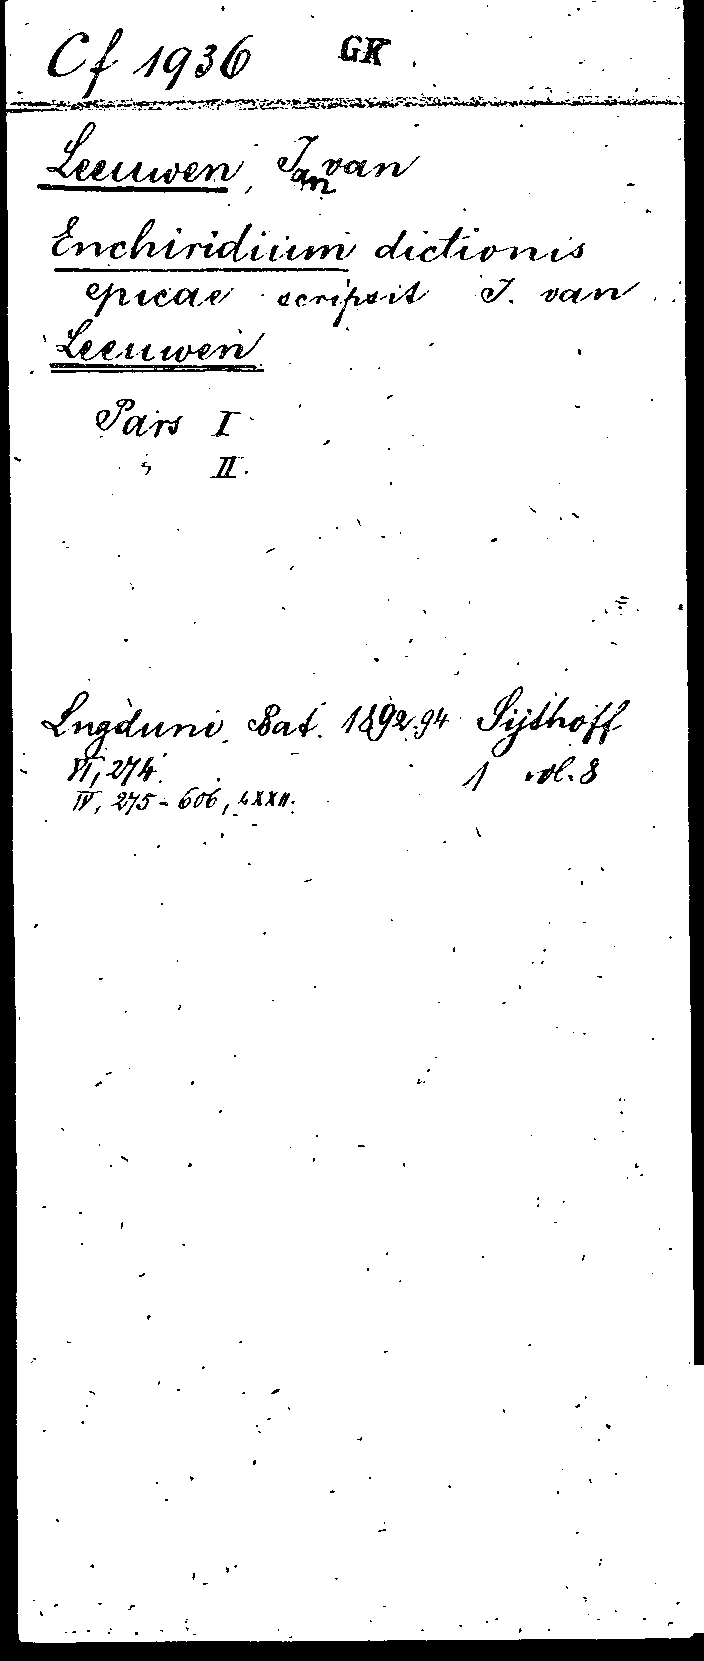 Cf 1936 GK
Leeuwen, Jan van
Enchiridium dictionis
epicae scripsit J. van
Leeuwen
Pars I
" II.
Lugduni Bat. 1892.94 Sijthoff
VI, 274. 1 vol. 8
IV, 275-606, LXXII.